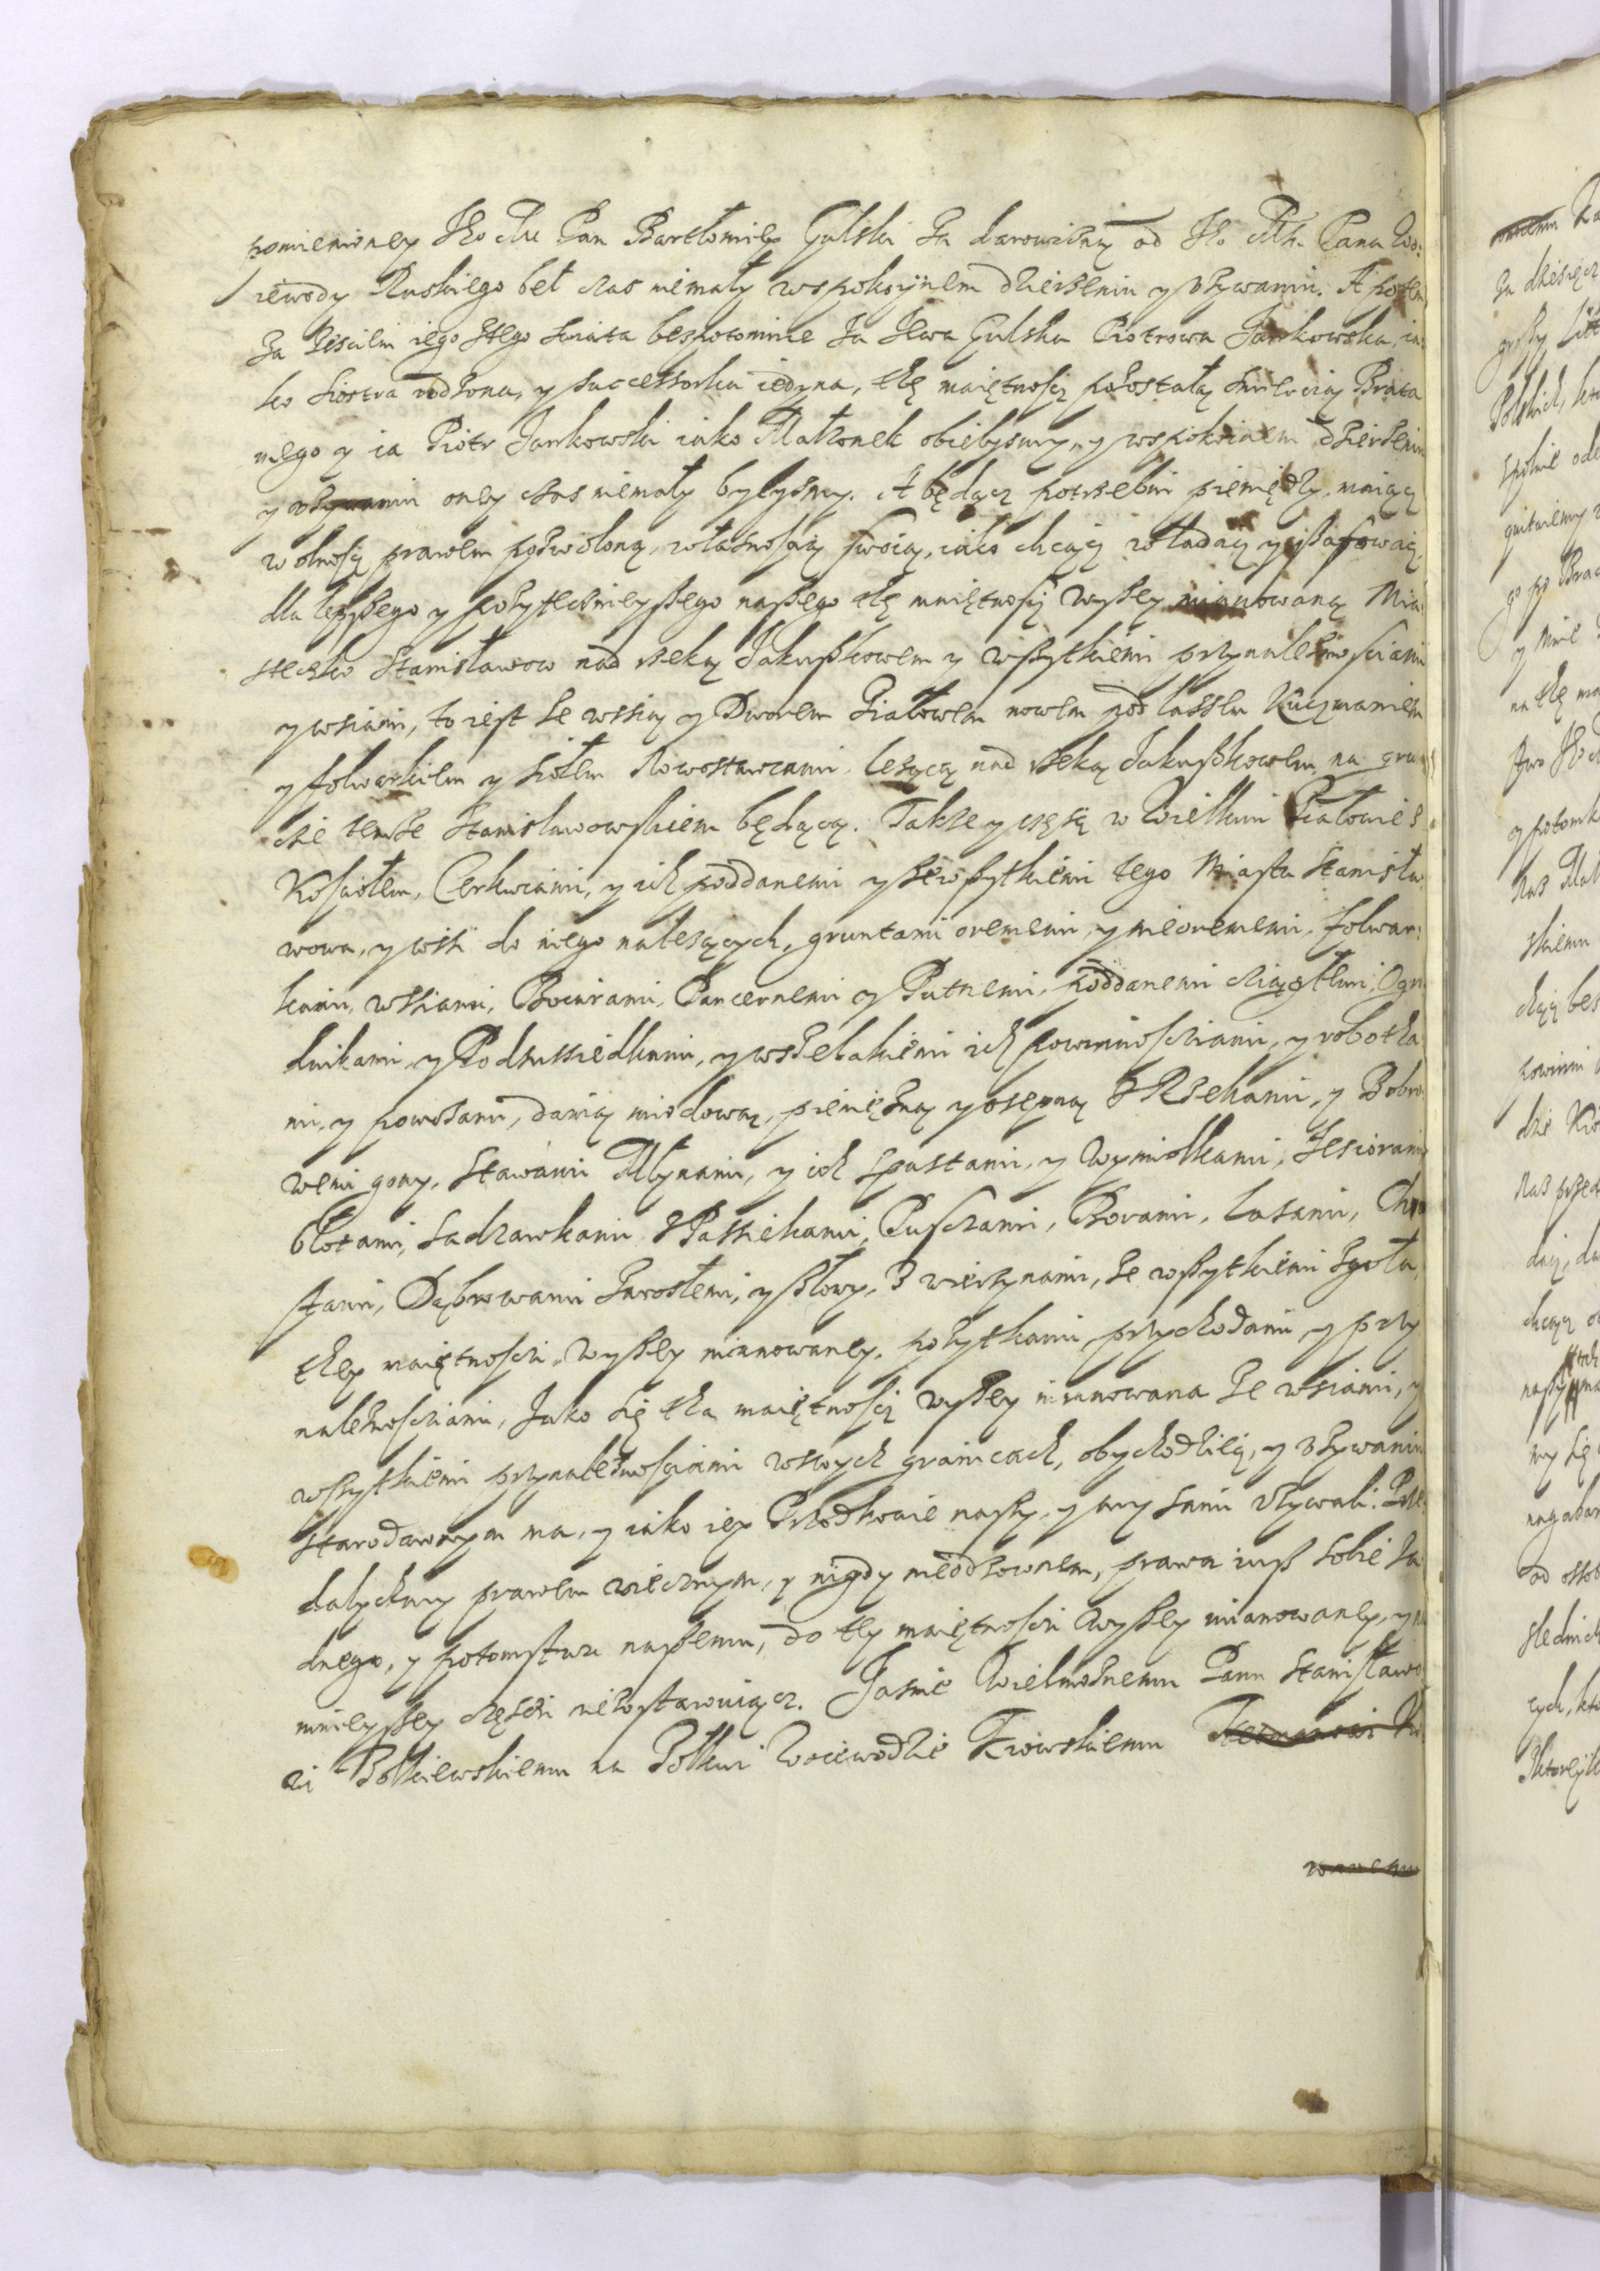 pomienioney Jho Mc Pan Bartłomiey Gulski za darowizną od Jho Mc Pana Wo-
iewody Ruskiego beł czas niemały wspokoynem dzierżeniu y używaniu. A potem
za ześciem iego stego świata bespotomnie Ja Ewa Gulska Piotrowa Jankowska ia-
ko siostra rodzona, y successorka iedyna, thę maiętność pozostałą smiercią Brata
mego y ia Piotr Jankowski iako Małzonek obielysmy, y wspokoinem dzierżeniu
y używaniu oney czas niemały bylysmy. A będącz potrzebni pieniędzy, maiącz
wolność prawem pozwoloną, własnością swoią, iako chcący władacz y szafowacz,
dla lepszego y pożyteczneyszego naszego thę maiętność wyszey mianowaną Mia-
steczko Stanisławow nad rzeką Jakuszkowem y wszytkiemi przynaleznosciami
y wsiami, to iest ze wsią y Dworem Piatowem nowem pod lassem Kuczmaniem
y folwarkiem y siołem Nowostawcami lezącą nad rzeką Jakuszkowem, na grun-
cie temze Stanisławowskiem będącą. Takze y częsć w Wielkim Piatowie z
Kosciołem, Cerkwiami, y ich poddanemi y zewszytkiemi tego Miasta Stanisła-
wowa, y wsi do niego nalezących, gruntami oremeni y nieoremeni, folwar-
kami, wsiami, Boiarami, Pancernemi y Putnemi, poddanemi ciągłemi, Ogro-
dnikami, y Podsussiedkami, y wszelakiemi ich powinnosciami, y robotha-
mi, y powozami, danią miodową, pienięzną y osepną z Rzekami, y Bobro-
wemi gony, Stawami Młynami, y ich spustami, y Wymiolkami, Jesiorami
błotami, Sadzawkami z Passiekami, Pusczami, Borami, Lasami, Chro-
stami, Dąbrowami Zarosłemi, y złowy, z wierzynami, ze wszytkiemi zgoła
they maiętnosci, wyszey mianowaney, pożytkami, przychodami, y przy-
naleznosciami, Jako się tha maiętność wyszey mianowana ze wsiami, y
wszytkiemi przynaleznosciami wswych granicach, obychodzieę, y używaniu
starodawnym ma, y iako iey Przodkowie naszy, y my sami używali. Prze-
dalychmy prawem wiecznym, y nigdy nieodzownem, prawa iusz sobie ża-
dnego, y potomstwu naszemu, do tey maiętnosci wyszey mianowaney, y na
mnieyszey części niezostawuiącz. Jasnie Wielmoznemu Panu Stanisławo-
wi Żołkiewskiemu na Żołkwi Woiewodzie Kiowskiemu